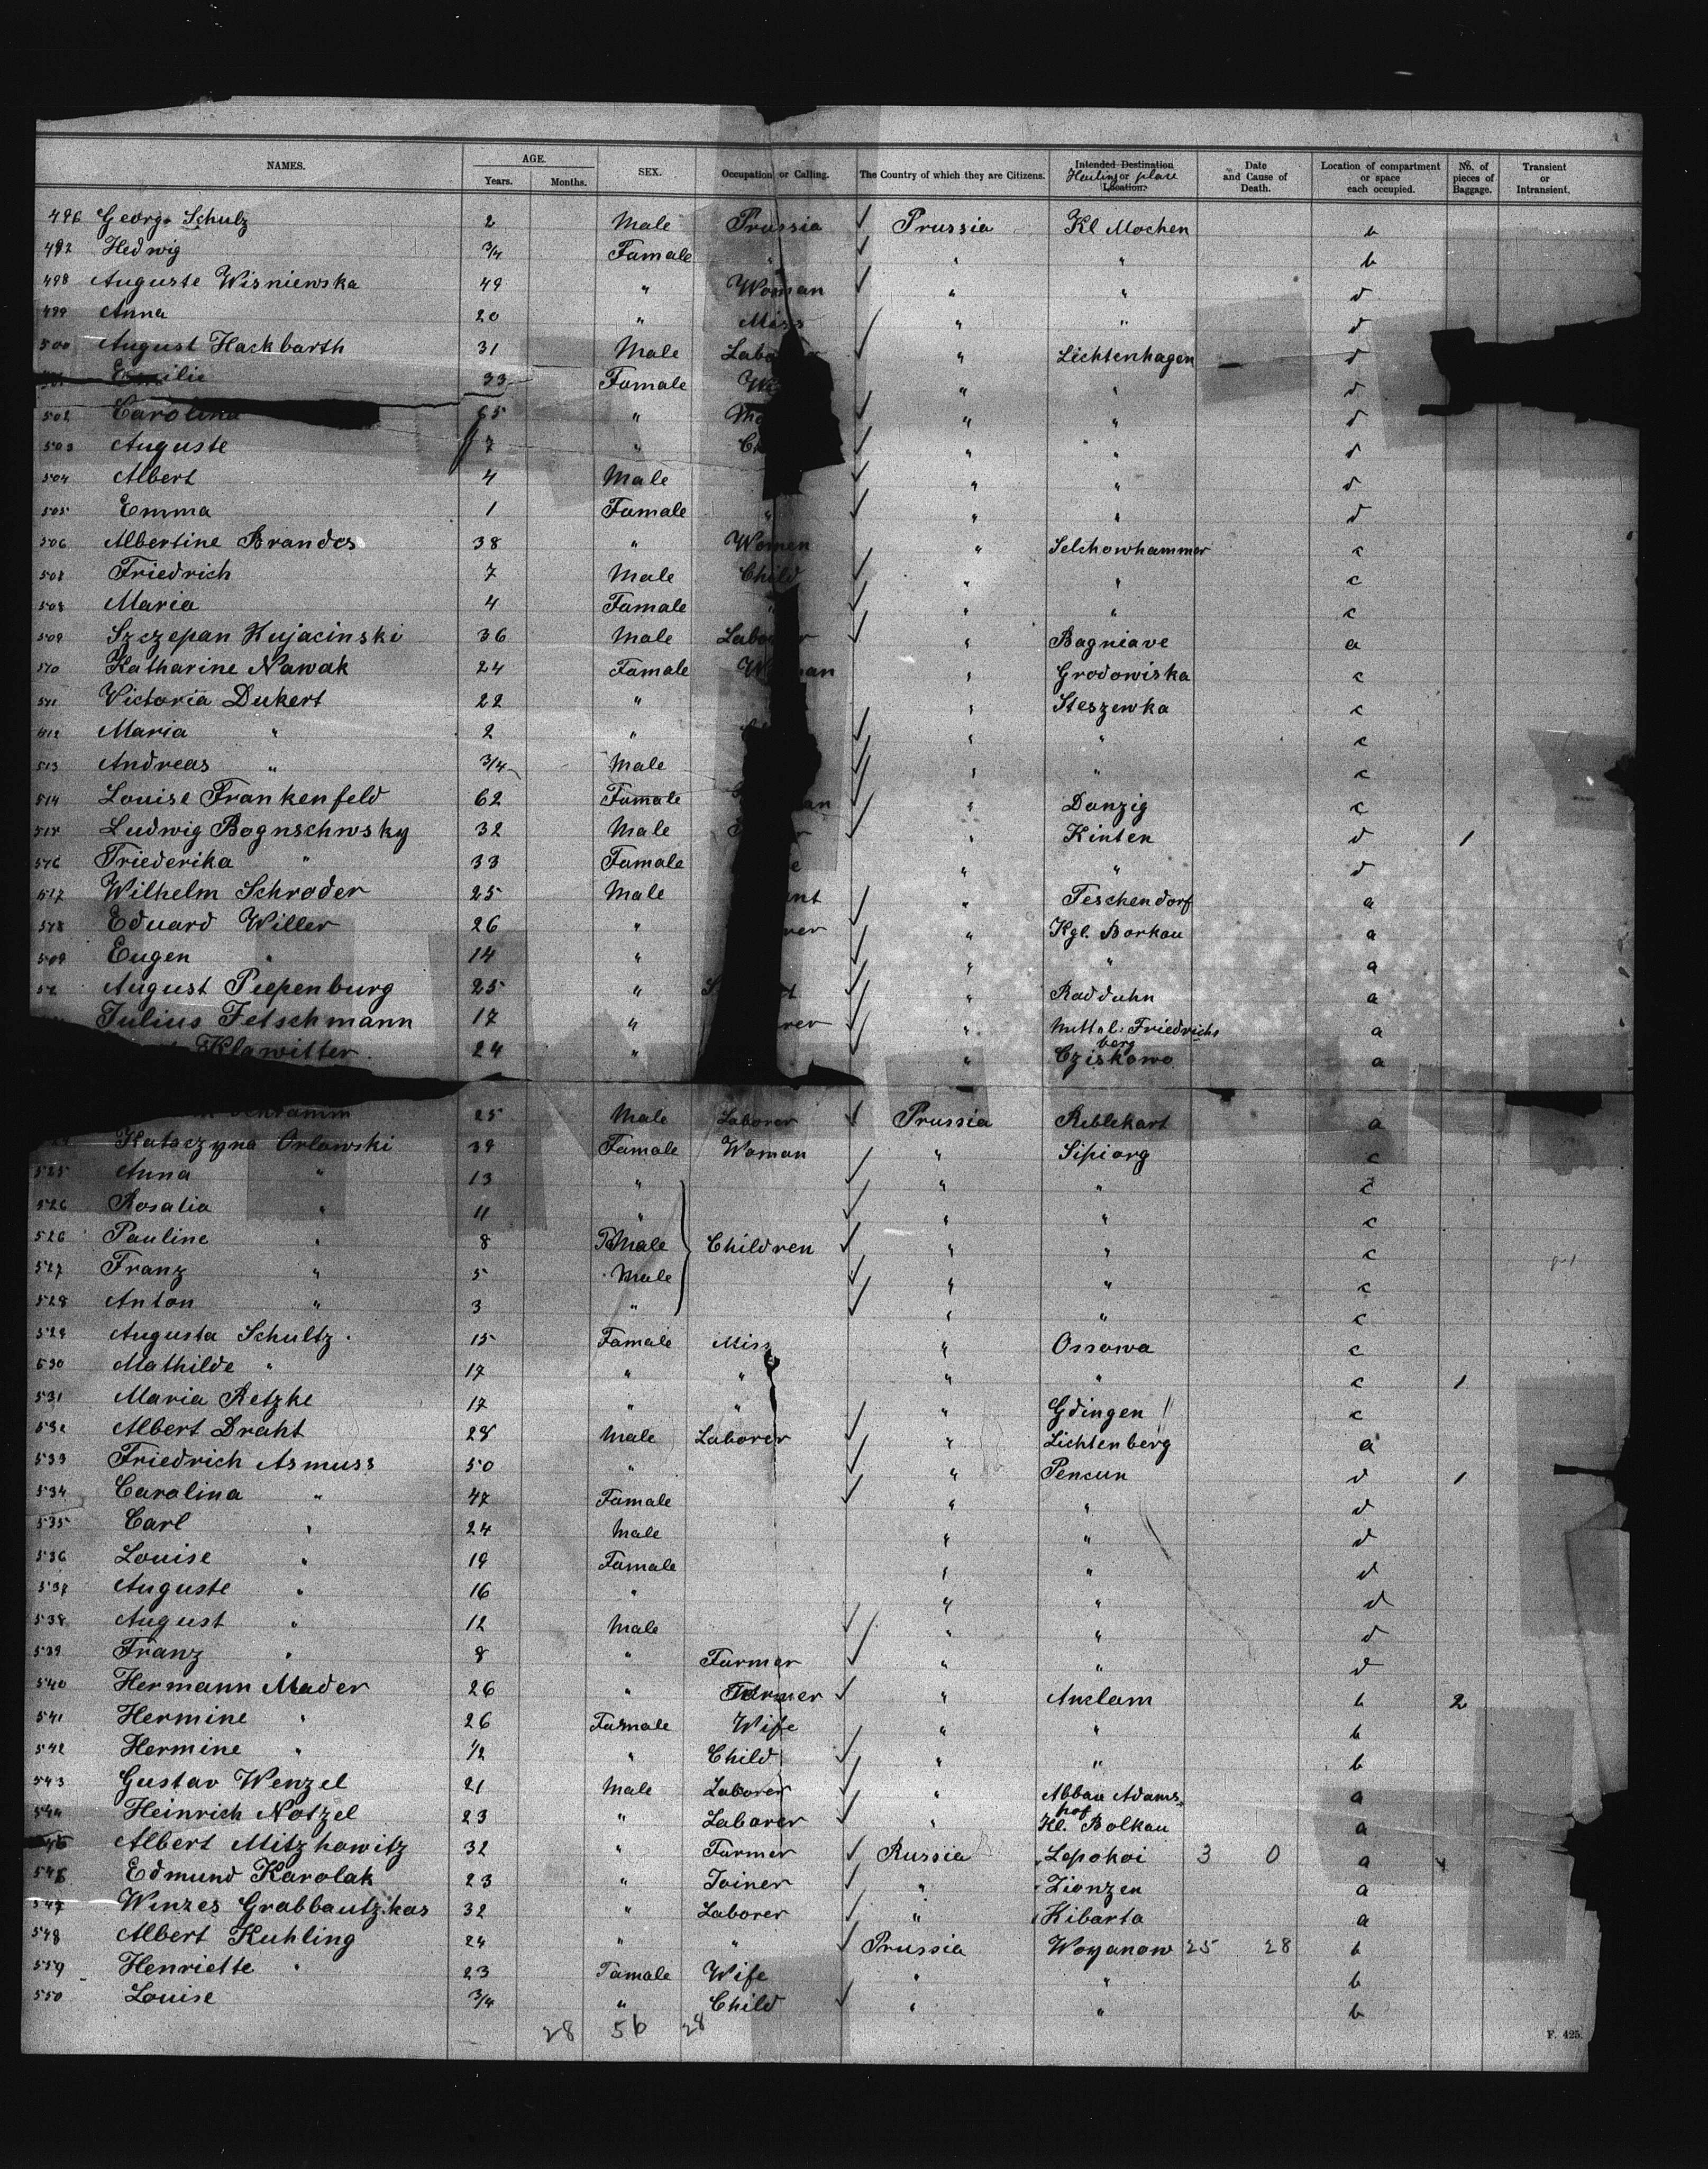 NAMES. AGE. Years. Months. SEX. Occupation or Calling. The Country of which they are Citizens. Intended Destination or Location. Hailing place Date and Cause of Death. Location of compartment or space each occupied. No. of pieces of Baggage. Transient or Intransient.
496 George Schulz 2 Male Prussia ✓ Prussia Kl Mochen b
492 Hedwig 3/4 Famale " ✓ " " b
498 Auguste Wisniewska 49 " Woman ✓ " " d
499 Anna 20 " Miss ✓ " " d
500 August Hackbarth 31 Male ✓ " Lichtenhagen d
Emilie 33 Famale " " d
502 Carolina 65 " ✓ " " d
503 Auguste 7 " ✓ " " d
504 Albert 4 Male ✓ " " d
505 Emma 1 Famale " ✓ " " d
506 Albertine Brandes 38 " Women " Selchowhammer c
507 Friedrich 7 Male Child ✓ " " c
508 Maria 4 Famale ✓ " " c
509 Szczepan Kujacinski 36 Male ✓ " Bagniave a
510 Katharine Nawak 24 Famale " Grodowiska c
511 Victoria Dukert 22 " " Steszewka c
512 Maria " 2 " ✓ " " c
513 Andreas " 3/4 Male ✓ " " c
514 Louise Frankenfeld 62 Famale ✓ " Danzig c
515 Ludwig Bognschwsky 32 Male ✓ " Kinten d 1
516 Friederika " 33 Famale " " d
517 Wilhelm Schroder 25 Male ✓ " Teschendorf a
518 Eduard Willer 26 " ✓ " Kgl. Borkau a
509 Eugen " 14 " ✓ " " a
52 August Piepenburg 25 " ✓ " Radduhn a
Julius Fetschmann 17 " ✓ " Mittel-Friedrichs berg a
Klawitter 24 " ✓ " Cziskowo a
25 Male Laborer ✓ Prussia Reblekart a
Kataczyna Orlawski 39 Famale Woman " Sipiorg c
525 Anna " 13 " ✓ " " c
526 Rosalia " 11 " ✓ " " c
526 Pauline " 8 Male Children ✓ " " c
527 Franz " 5 Male ✓ " " c
528 Anton " 3 " ✓ " " c
529 Augusta Schultz. 15 Famale Miss " Ossowa c
530 Mathilde " 17 " " " " c 1
531 Maria Retzke 17 " " " Gdingen c
532 Albert Draht 28 Male Laborer ✓ " Lichtenberg a
533 Friedrich Asmuss 50 " ✓ " Pencun d 1
534 Carolina " 47 Famale ✓ " " d
535 Carl " 24 Male " " d
536 Louise " 19 Famale " " d
537 Auguste " 16 " " " d
538 August " 12 Male ✓ " " d
539 Franz " 8 " Farmer ✓ " " d
540 Hermann Mader 26 " Farmer ✓ " Anclam b 2
541 Hermine " 26 Famale Wife " " b
542 Hermine " 1/2 " Child ✓ " " b
543 Gustav Wenzel 21 Male Laborer ✓ " Abbau Adams- hof a
544 Heinrich Notzel 23 " Laborer ✓ " Kl. Bolkau a
Albert Mitzkowitz 32 " Farmer ✓ Russia Lepokoi 3 0 a
546 Edmund Karolak 23 " Joiner ✓ " Zionzen a
547 Winzes Grabbautzkas 32 " Laborer ✓ " Kibarta a
548 Albert Kuhling 24 " " ✓ Prussia Woyanow 25 28 b
559 Henriette " 23 Famale Wife " " b
550 Louise 3/4 " Child ✓ " " b
28 56 28
F. 425.